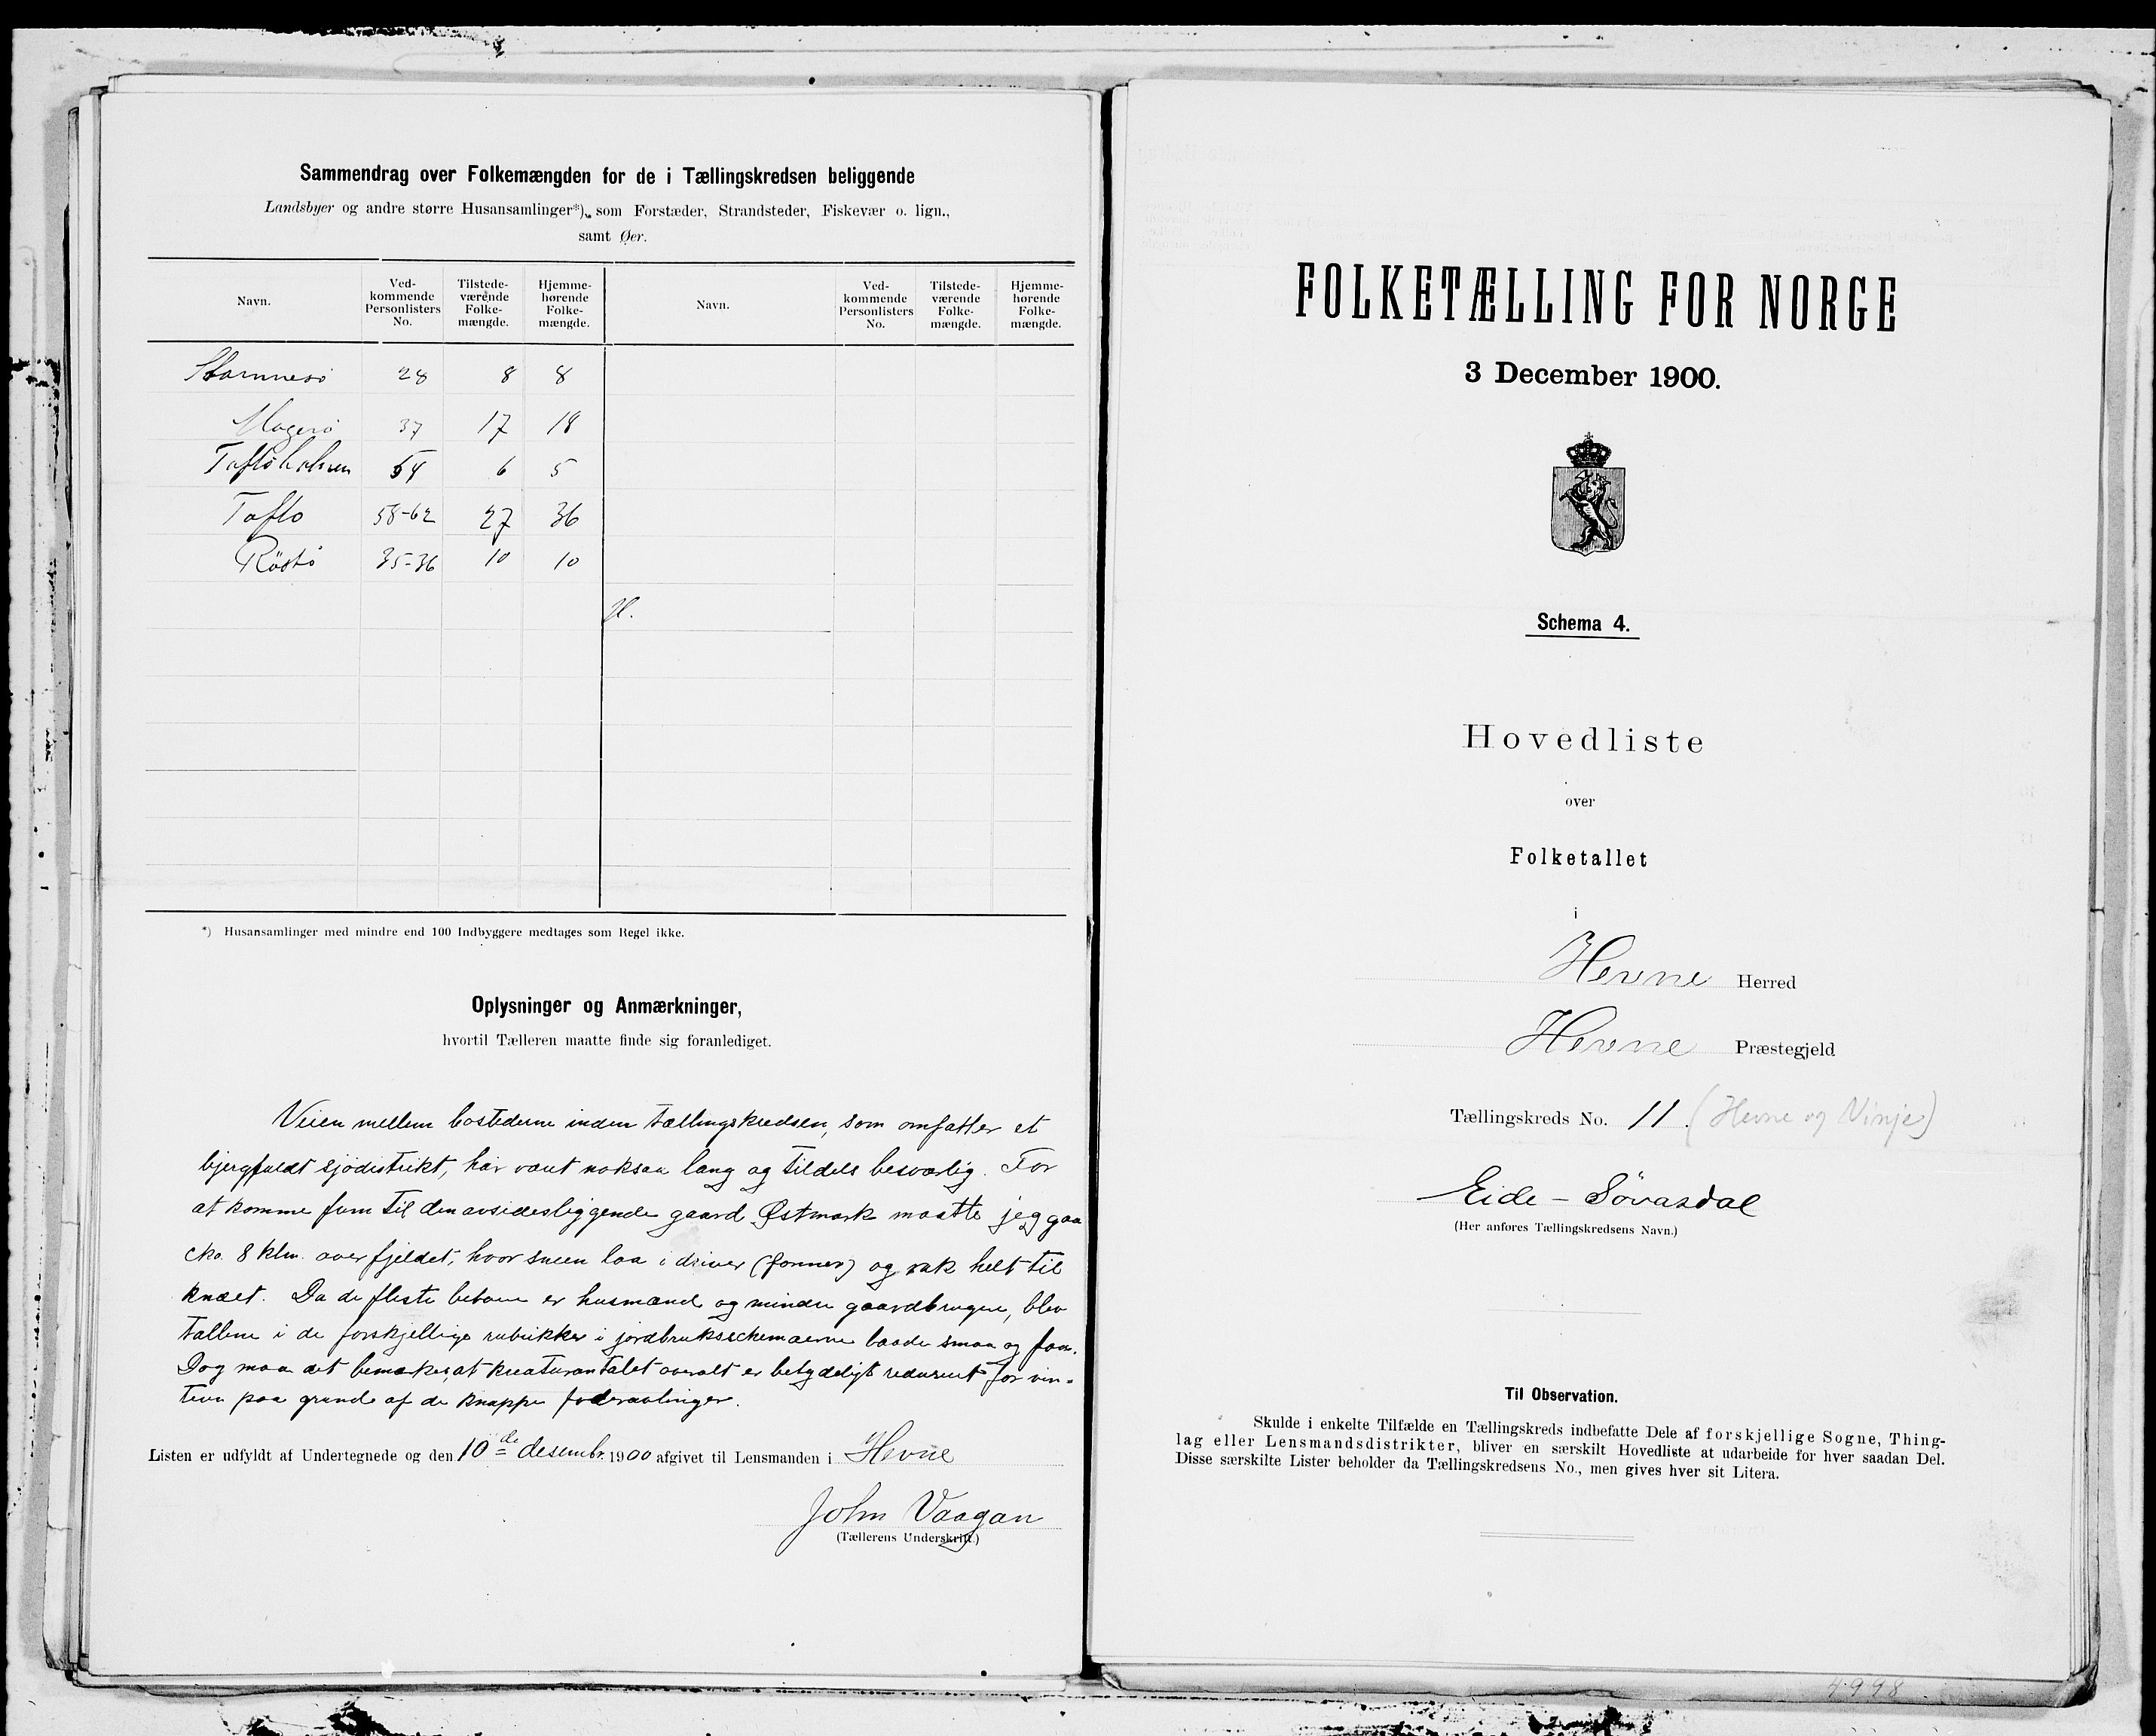 Sammendrag over Folkemængden for de i Tællingskredsen beliggende
Landsbyer og andre større Husansamlinger*), som Forstæder, Strandsteder, Fiskevær o. lign.,
samt Øer.
Navn. Ved-kommende Personlisters No. Tilstede-værende Folke-mængde. Hjemme-hørende Folke-mængde. Navn. Ved-kommende Personlisters No. Tilstede-værende Folke-mængde. Hjemme-hørende Folke-mængde.
Stamnesö 28 8 8
Magerö 37 17 18
Taftöholmen 54 6 5
Taftö 58-62 27 36
Röstö 35-36 10 10
*) Husansamlinger med mindre end 100 Indbyggere medtages som Regel ikke.
Oplysninger og Anmærkninger,
hvortil Tælleren maatte finde sig foranlediget.
Veien mellem bostederne inden tællingskredsen, som omfatter et
bjergfuldt sjödistrikt, har været noksaa lang og tildels besværlig. For
at komme frem til den avsidesliggende gaard Østmark maatte jeg gaa
cka. 8 klm. over fjeldet, hvor sneen laa i driver (fonner) og rak helt til
knæet. Da de fleste beboere er husmænd og mindre gaardbrugere, blev
tallene i de forskjellige rubrikker i jordbruksschemaerne baade smaa og faa.
Dog maa det bemærkes, at kreaturantalet overalt er betydeligt reduseret for vin-
teren paa grund af de knappe foderavlinger.
Listen er udfyldt af Undertegnede og den 10de desembr. 1900 afgivet til Lensmanden i Hevne
John Vaagan
(Tællerens Underskrift.)
FOLKETÆLLING FOR NORGE
3 December 1900.
Schema 4.
Hovedliste
over
Folketallet
i
Hevne Herred
Hevne Præstegjeld
Tællingskreds No. 11. (Hevne og Vinje)
Eide - Søvasdal
(Her anføres Tællingskredsens Navn.)
Til Observation.
Skulde i enkelte Tilfælde en Tællingskreds indbefatte Dele af forskjellige Sogne, Thing-
lag eller Lensmandsdistrikter, bliver en særskilt Hovedliste at udarbeide for hver saadan Del.
Disse særskilte Lister beholder da Tællingskredsens No., men gives hver sit Litera.
4998